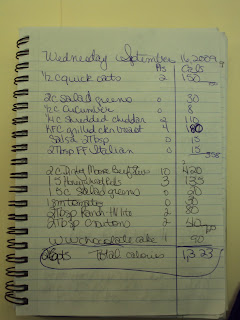 Wednesday September 16, 2009
Pts Cals
1/2 c quick oats 2 150
2c salad greens 0 30
1/2 c cucumber 0 8
1/4 c shredded cheddar 2 110
KFC grilled ckn breast 4 180
Salsa 2 tbsp 0 15
2 tbsp FF Italian 0 15
2c Dinty Moore Beef Stew 10 420
1.5 Hawaiian rolls 3 135
1.5 c Salad greens 0 20
tomatoes 0 30
2 tbsp Ranch 2 80
2 tbsp Croutons 2
WW chocolate cake 1 90
26 pts Total calories 1,323